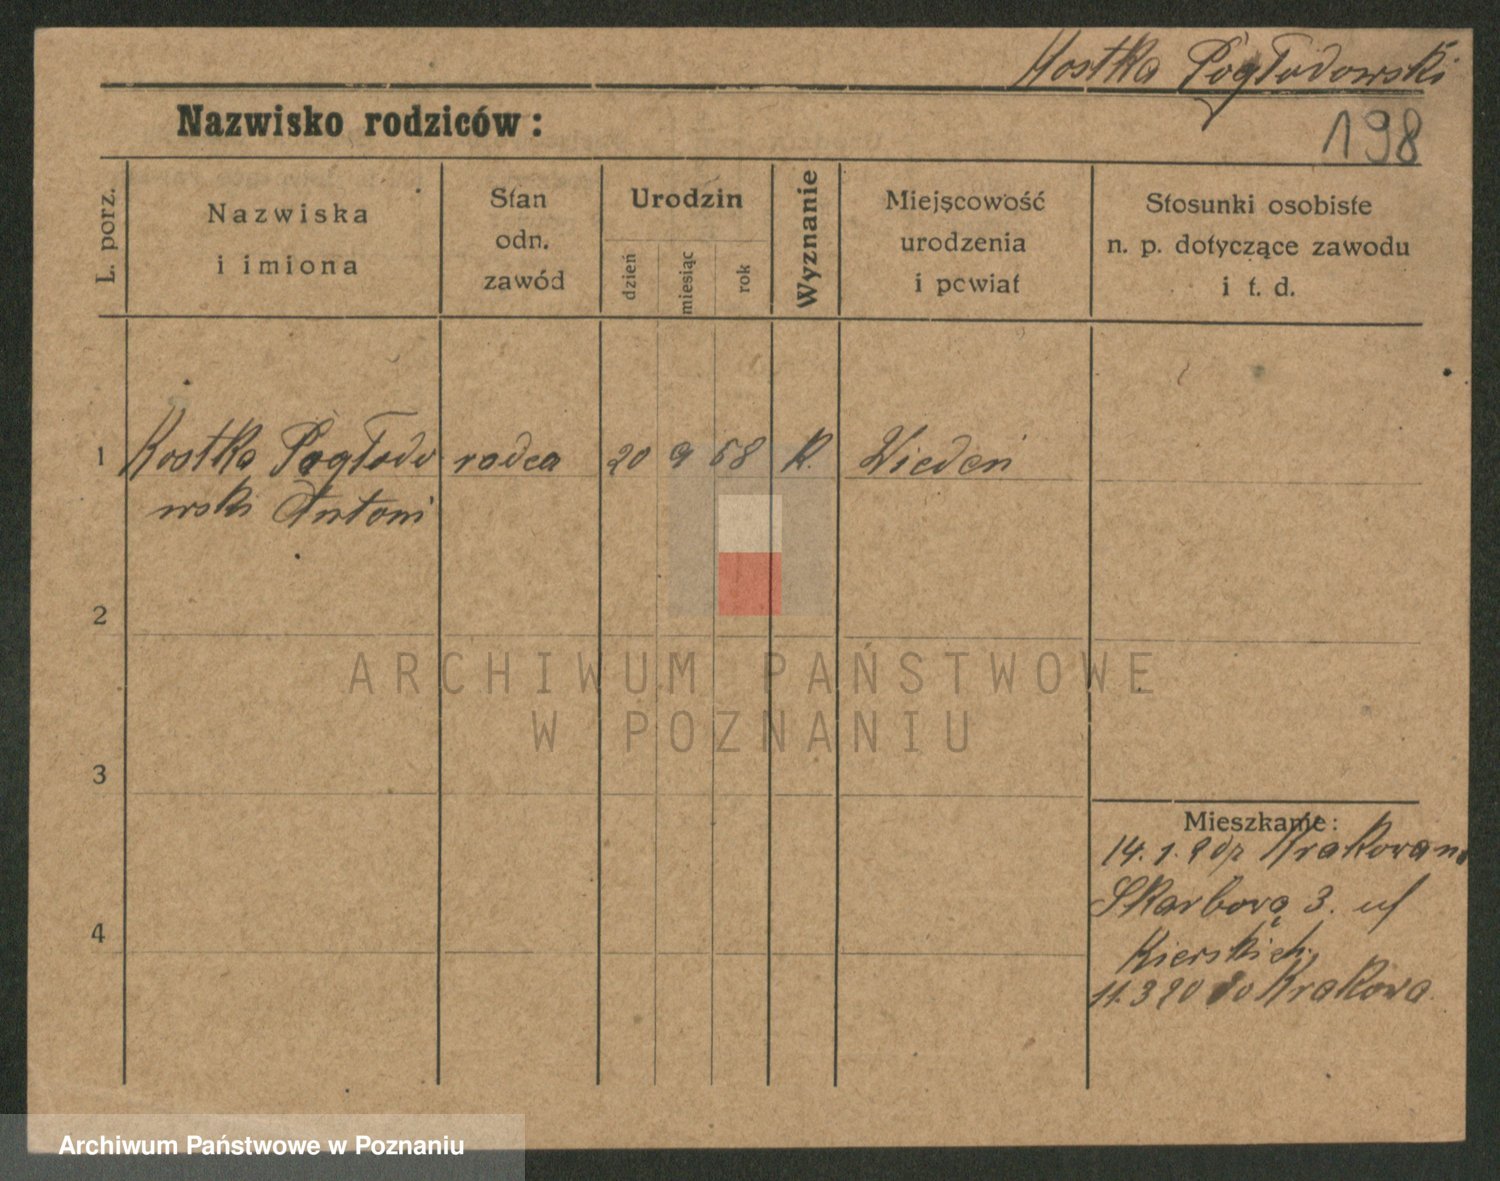 Kostka Pogłodowski
Nazwisko rodziców:
198
L. porz.
Nazwiska
i imiona
Stan
odn.
zawód
Urodzin
dzień
miesiąc
rok
Wyznanie
Miejscowość
urodzenia
i powiat
Stosunki osobiste
n. p. dotyczące zawodu
i t. d.
1 Kostka Pogłodo radca 20 9 58 K. Wiedeń
wski Antoni
2
ARCHIWUM PAŃSTWOWE
W POZNANIU
3
Mieszkanie:
14. 1. 20 Krakowa n.
Skarbową 3. u
4
Kierskich
11.3 20 do Krakowa
Archiwum Państwowe w Poznaniu